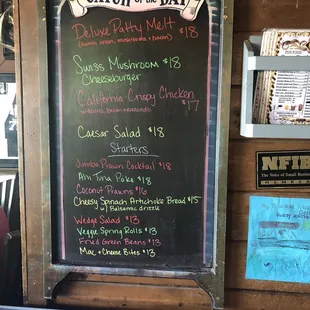 CATCH of the DAY
Deluxe Patty Melt
$18
Swiss Mushroom $18
Cheeseburger
California Crispy Chicken
$17
Caesar Salad $18
Starters
Jumbo Prawn Cocktail $18
Ahi Tuna Poke $18
Coconut Prawns $16
Cheesy Spinach Artichoke Bread $15
w/ Balsamic drizzle
Wedge Salad $13
Veggie Spring Rolls $13
Fried Green Beans $13
Mac + Cheese Bites $13
NFIB
The Voice of Small Business
MEMBER